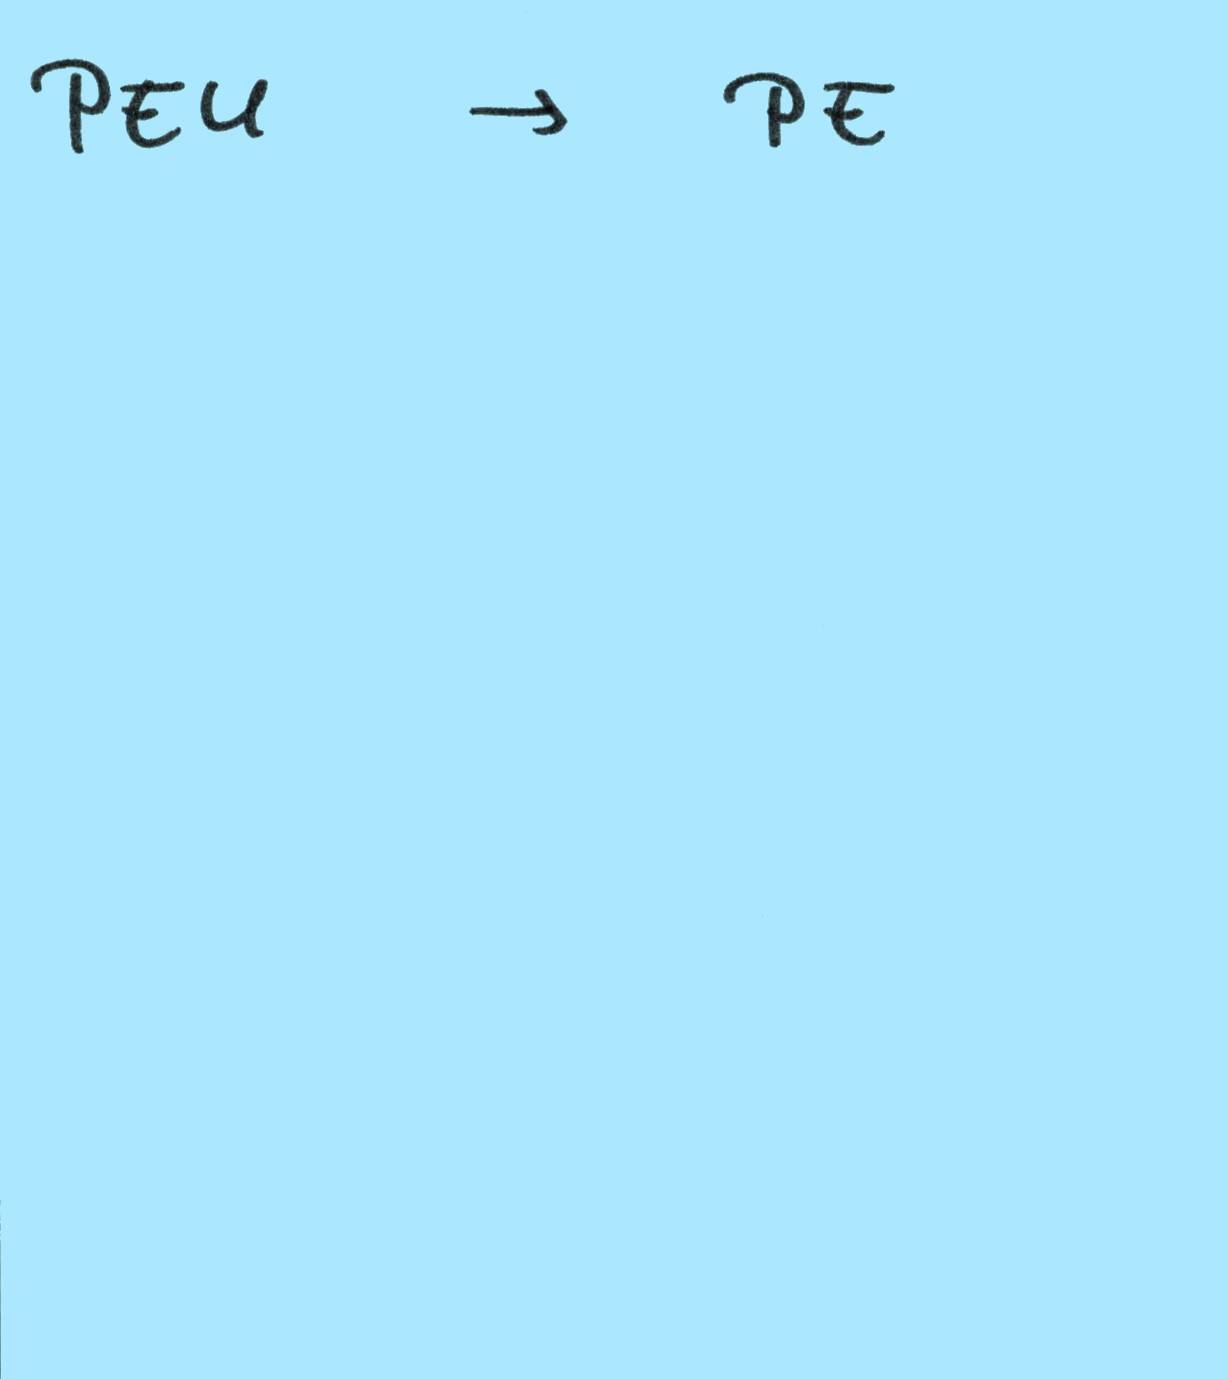 PEU → PE